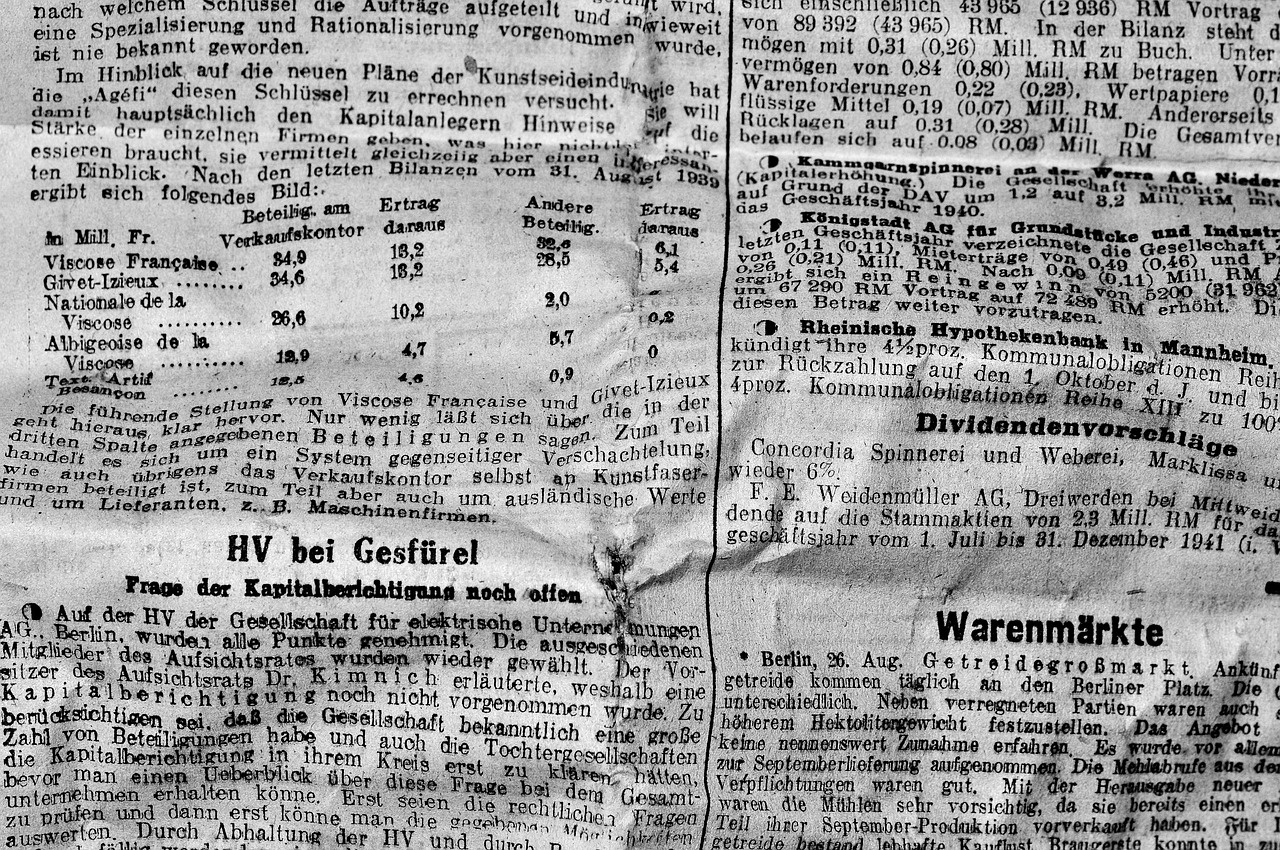 nach welchem Schlüssel die Aufträge aufgeteilt und inwieweit wird,
eine Spezialisierung und Rationalisierung vorgenommen wurde,
ist nie bekannt geworden.
Im Hinblick auf die neuen Pläne der Kunstseideindustrie hat
die „Agéfi“ diesen Schlüssel zu errechnen versucht. Sie will
damit hauptsächlich den Kapitalanlegern Hinweise die
Stärke der einzelnen Firmen geben, was hier nicht
essieren braucht, sie vermittelt gleichzeitig aber einen interessan-
ten Einblick. Nach den letzten Bilanzen vom 31. August 1939
ergibt sich folgendes Bild:
In Mill. Fr. Beteilig. am Verkaufskontor Ertrag daraus Andere Beteilig. Ertrag daraus
Viscose Française .. 34,9 13,2 32,6 6,1
Givet-Izieux ........ 34,6 13,2 28,5 5,4
Nationale de la
Viscose .......... 26,6 10,2 2,0 0,2
Albigeoise de la
Viscose .......... 12,9 4,7 5,7 0
Text. Artif
Besançon ........ 12,5 4,6 0,9
Die führende Stellung von Viscose Française und Givet-Izieux
geht hieraus klar hervor. Nur wenig läßt sich über die in der
dritten Spalte angegebenen Beteiligungen sagen. Zum Teil
handelt es sich um ein System gegenseitiger Verschachtelung,
wie auch übrigens das Verkaufskontor selbst an Kunstfaser-
firmen beteiligt ist, zum Teil aber auch um ausländische Werte
und um Lieferanten, z. B. Maschinenfirmen.
HV bei Gesfürel
Frage der Kapitalberichtigung noch offen
Auf der HV der Gesellschaft für elektrische Unternehmungen
AG., Berlin, wurden alle Punkte genehmigt. Die ausgeschiedenen
Mitglieder des Aufsichtsrates wurden wieder gewählt. Der Vor-
sitzer des Aufsichtsrats Dr. Kimnich erläuterte, weshalb eine
Kapitalberichtigung noch nicht vorgenommen wurde. Zu
berücksichtigen sei, daß die Gesellschaft bekanntlich eine große
Zahl von Beteiligungen habe und auch die Tochtergesellschaften
die Kapitalberichtigung in ihrem Kreis erst zu klären hätten,
bevor man einen Ueberblick über diese Frage bei dem Gesamt-
unternehmen erhalten könne. Erst seien die rechtlichen Fragen
zu prüfen und dann erst könne man die gegebenen Möglichkeiten
auswerten. Durch Abhaltung der HV und durch
sich einschließlich 43 965 (12 936) RM Vortrag
von 89 392 (43 965) RM. In der Bilanz steht
mögen mit 0,31 (0,26) Mill. RM zu Buch. Unter
vermögen von 0,84 (0,80) Mill. RM betragen
Warenforderungen 0,22 (0,23), Wertpapiere
flüssige Mittel 0,19 (0,07) Mill. RM. Andererseits
Rücklagen auf 0,31 (0,28) Mill. Die
belaufen sich auf 0.08 (0,03) Mill. RM.
Kammgarnspinnerei an der Werra AG,
(Kapitalerhöhung.) Die Gesellschaft erhöhte
auf Grund der DAV um 1,2 auf 3,2 Mill. RM
das Geschäftsjahr 1940.
Königstadt AG für Grundstücke und
letzten Geschäftsjahr verzeichnete die Gesellschaft
von 0,11 (0,11), Mieterträge von 0,49 (0,46) und
von (0,21) Mill. RM. Nach 0,09 (0,11) Mill. RM
0,26 ergibt sich ein Reingewinn von 5200 (31 962)
um 67 290 RM Vortrag auf 72 489 RM erhöht.
diesen Betrag weiter vorzutragen.
Rheinische Hypothekenbank in Mannheim.
kündigt ihre 4½proz. Kommunalobligationen
zur Rückzahlung auf den 1. Oktober d. J. und
4proz. Kommunalobligationen Reihe XIII zu 100%
Dividendenvorschläge
Concordia Spinnerei und Weberei, Marklissa
wieder 6%.
F. E. Weidenmüller AG, Dreiwerden bei
dende auf die Stammaktien von 2,3 Mill. RM für
geschäftsjahr vom 1. Juli bis 31. Dezember 1941 (i.
Warenmärkte
* Berlin, 26. Aug. Getreidegroßmarkt.
getreide kommen täglich an den Berliner Platz. Die
unterschiedlich. Neben verregneten Partien waren auch
höherem Hektolitergewicht festzustellen. Das Angebot
keine nennenswert Zunahme erfahren. Es wurde vor allem
zur Septemberlieferung aufgenommen. Die Mehlabrufe aus
Verpflichtungen waren gut. Mit der Herausgabe neuer
waren die Mühlen sehr vorsichtig, da sie bereits einen
Teil ihrer September-Produktion vorverkauft haben. Für
getreide bestand lebhafte Kauflust. Braugerste konnte in